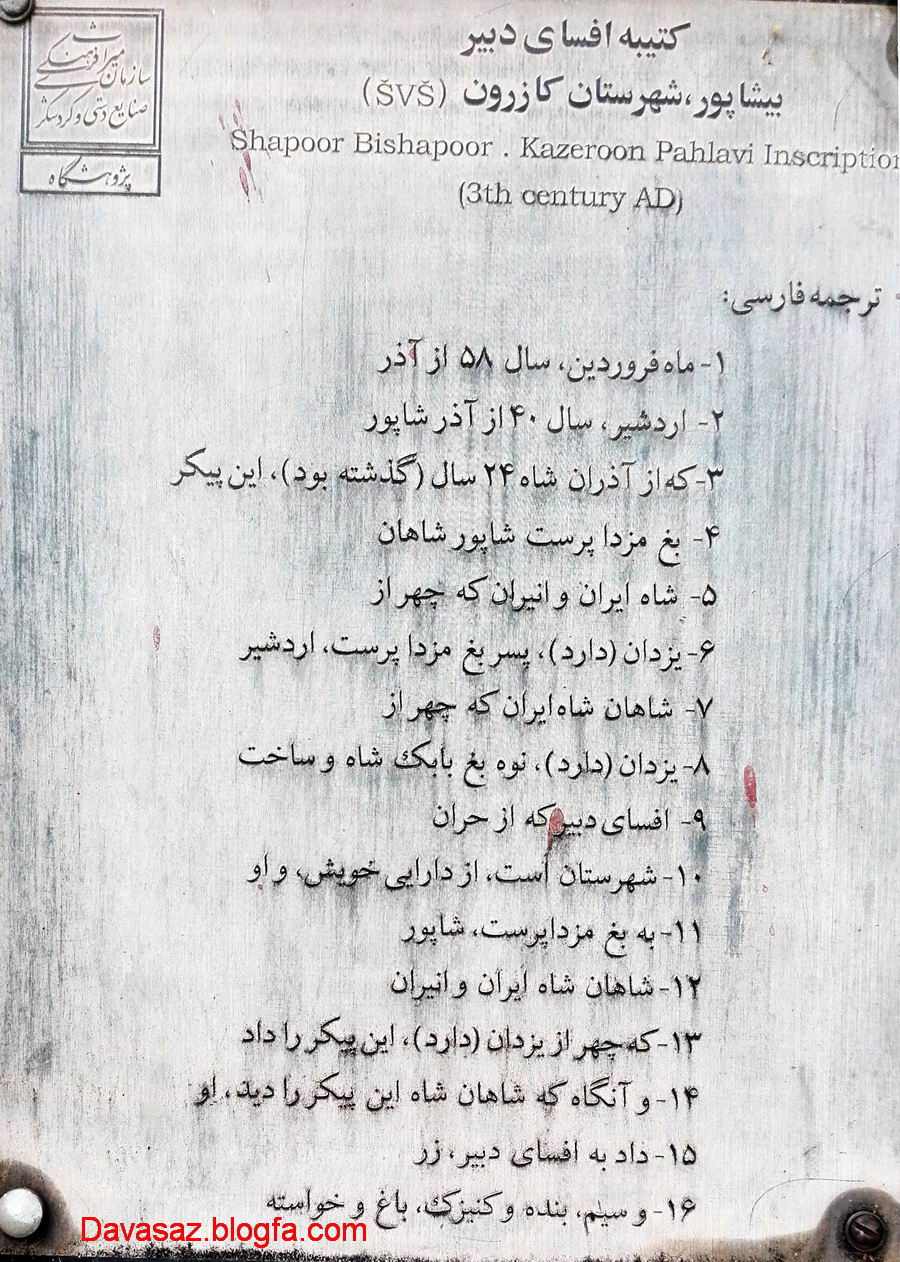 سازمان میراث فرهنگی
صنایع دستی و گردشگری
پژوهشگاه
کتیبه افسای دبیر
بیشاپور، شهرستان کازرون (ŠVŠ)
Shapoor Bishapoor . Kazeroon Pahlavi Inscription
(3th century AD)
ترجمه فارسی:
۱- ماه فروردین، سال ۵۸ از آذر
۲- اردشیر، سال ۴۰ از آذر شاپور
۳- که از آذران شاه ۲۴ سال (گذشته بود)، این پیکر
۴- بغ مزدا پرست شاپور شاهان
۵- شاه ایران و انیران که چهر از
۶- یزدان (دارد)، پسر بغ مزدا پرست، اردشیر
۷- شاهان شاه ایران که چهر از
۸- یزدان (دارد)، نوه بغ بابک شاه و ساخت
۹- افسای دبیر که از حران
۱۰- شهرستان است، از دارایی خویش، و او
۱۱- به بغ مزداپرست، شاپور
۱۲- شاهان شاه ایران و انیران
۱۳- که چهر از یزدان (دارد)، این پیکر را داد
۱۴- و آنگاه که شاهان شاه این پیکر را دید، او
۱۵- داد به افسای دبیر، زر
۱۶- و سیم، بنده و کنیزک، باغ و خواسته
Davasaz.blogfa.com